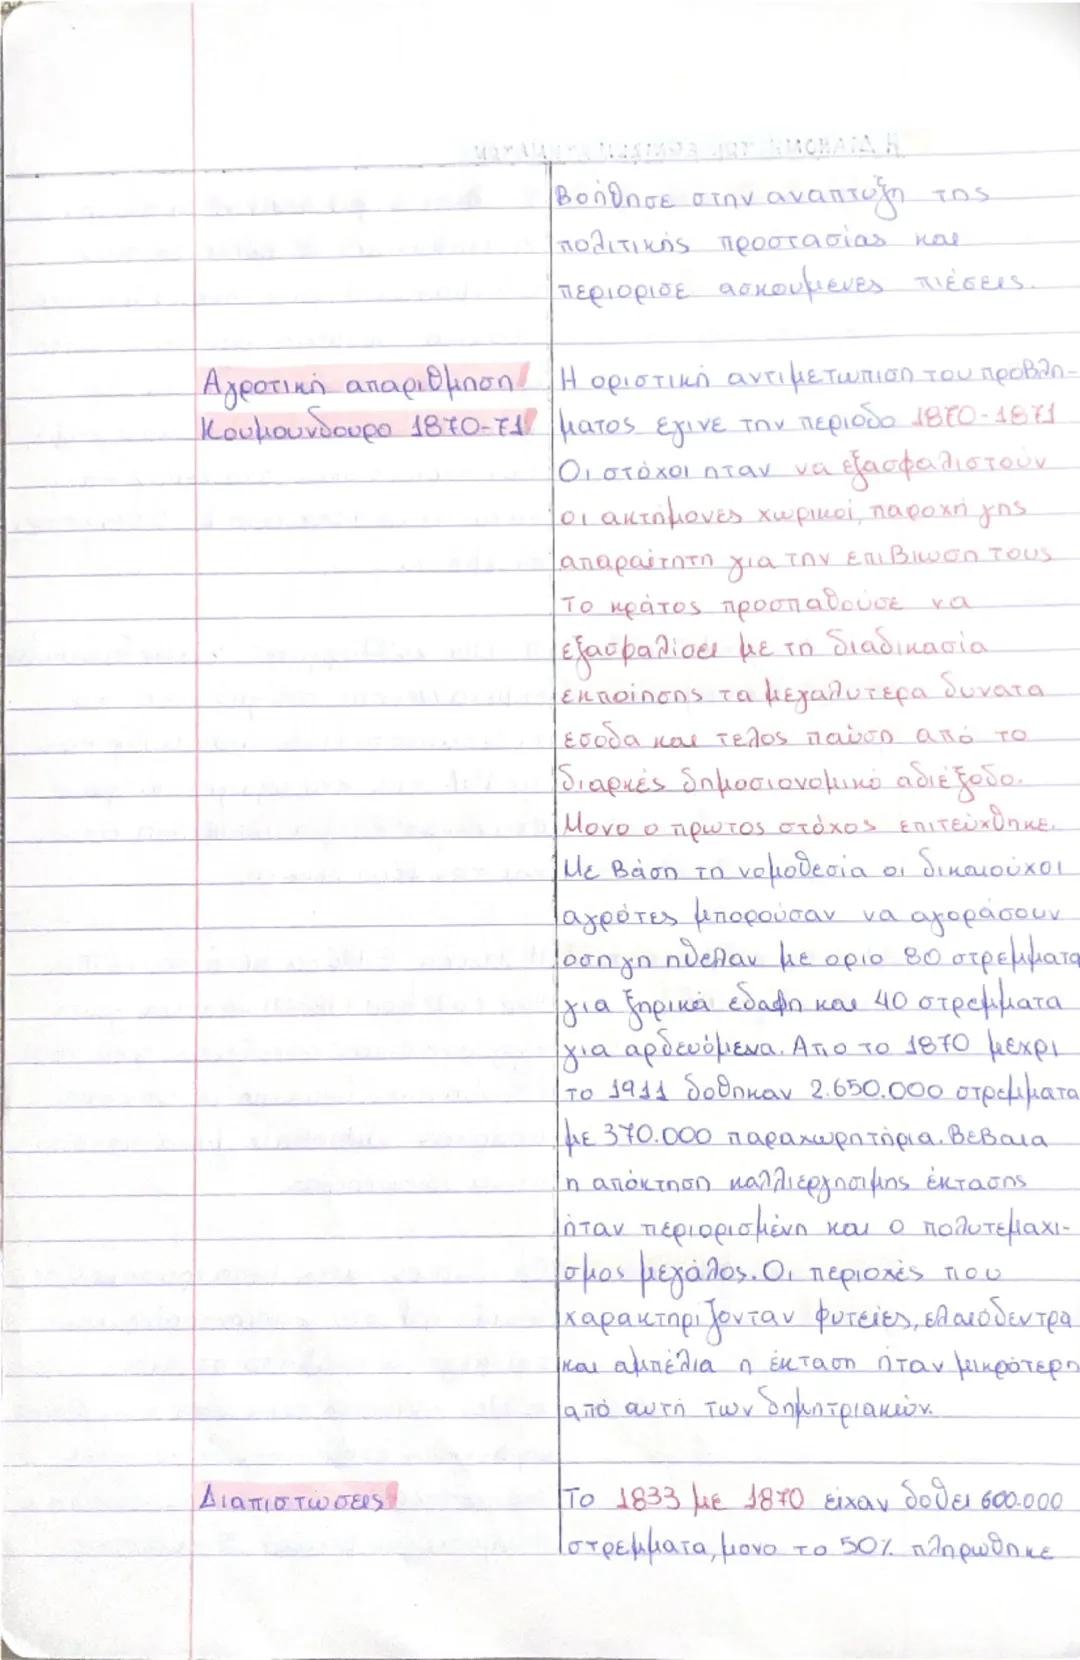 βοήθησε στην αναπτυξη της
πολιτικής προστασίας και
περιορισε ασκουμενες πιέσεις.
Αγροτική απαριθμηση
Κουμουνδουρο 1870-71
Η οριστική αντιμετωπιση του προβλη-
ματος εγινε την περιοδο 1870-1871
Οι στόχοι ηταν να εξασφαλιστούν
οι ακτήμονες χωρικοί, παροχή γης
απαραίτητη για την επιβιωση τους
Το κράτος προσπαθούσε να
εξασφαλίσει με τη διαδικασία
εκποίησης τα μεγαλυτερα δυνατα
εσοδα και τελος παύση από το
διαρκές δημοσιονομικό αδιέξοδο.
Μονο ο πρωτος στόχος επιτεύχθηκε.
Με Βάση τη νομοθεσία οι δικαιούχοι
αγρότες μπορούσαν να αγοράσουν
όση γη ηθελαν με οριο 80 στρεμματα
για ξηρικά εδαφη και 40 στρεμματα
για αρδευόμενα. Απο το 1870 μεχρι
το 1911 δοθηκαν 2.650.000 στρεμματα
με 370.000 παραχωρητήρια. Βεβαια
η απόκτηση καλλιεργησιμης έκτασης
ήταν περιορισμένη και ο πολυτεμαχι-
σμος μεγάλος. Οι περιοχές που
χαρακτηριζονταν φυτείες, ελαιόδεντρα
και αμπέλια η έκταση ήταν μικρότερη
από αυτή των δημητριακών.
Διαπιστωσεις
Το 1833 με 1870 είχαν δοθει 600.000
στρεμματα, μονο το 50% πληρωθηκε